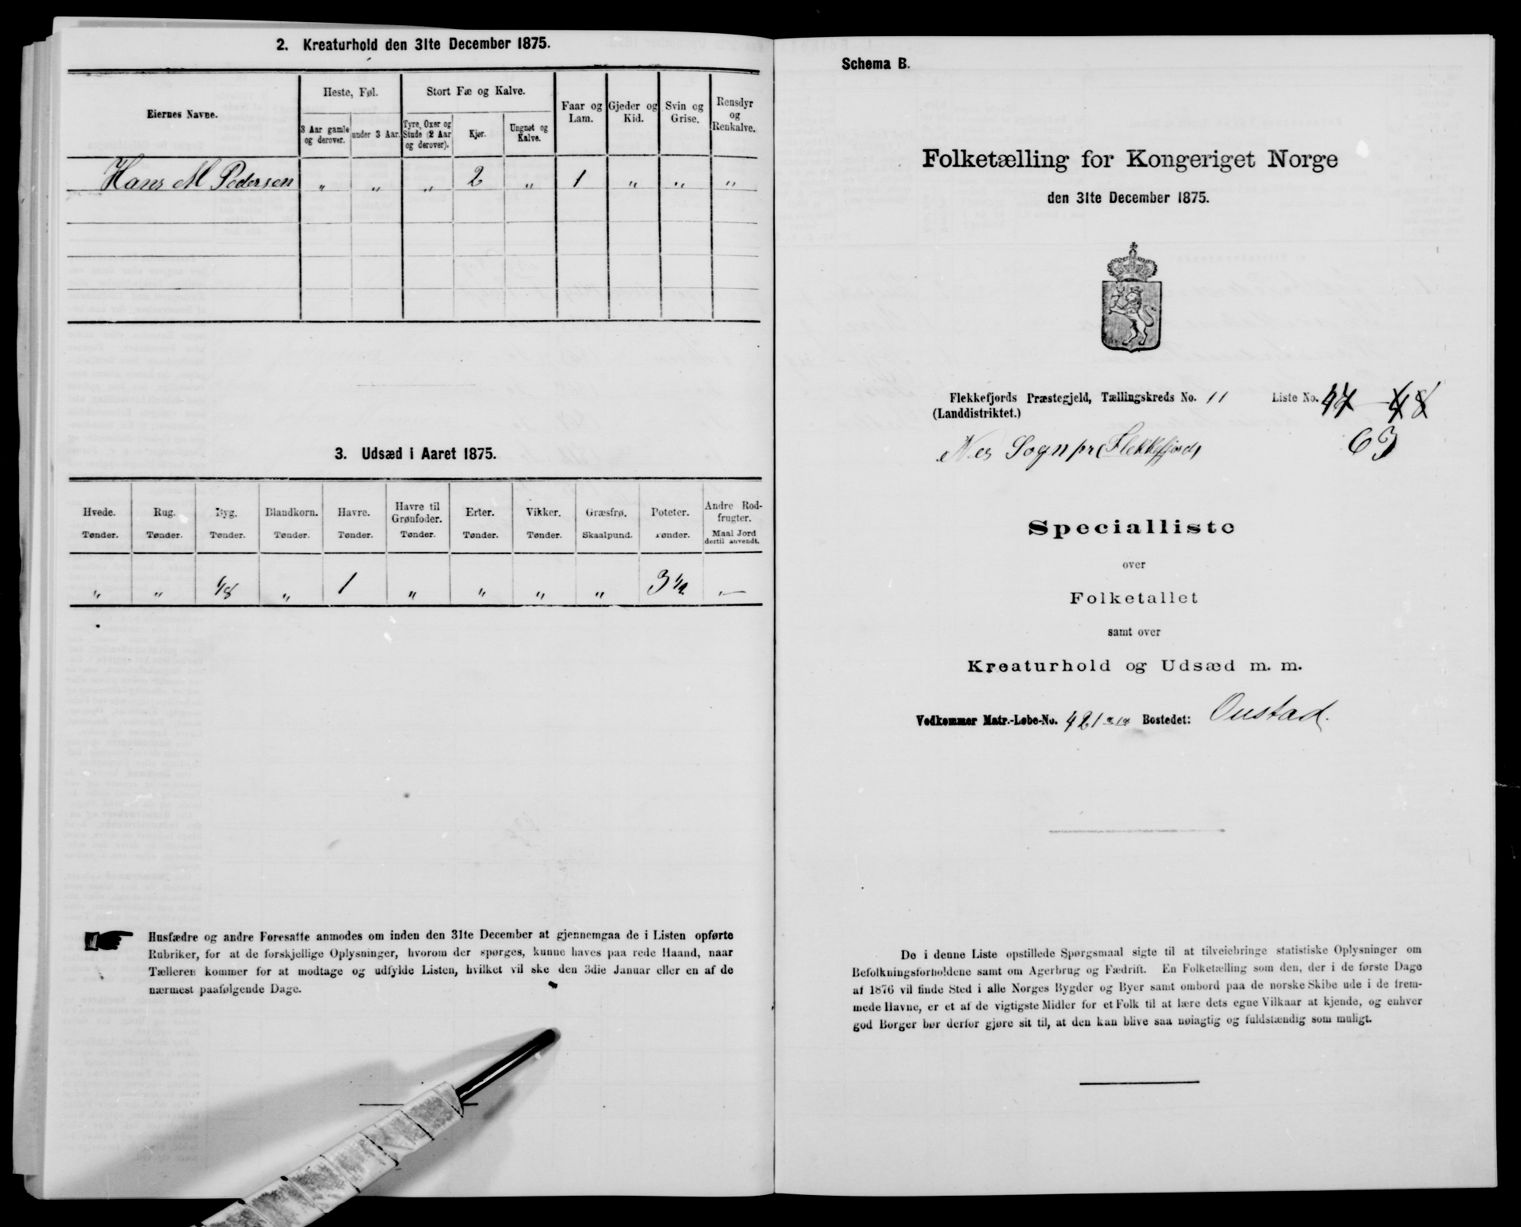 2. Kreaturhold den 31te December 1875.
Eiernes Navne.
Heste, Føl.
Stort Fæ og Kalve.
Faar og Lam.
Gjeder og Kid.
Svin og Grise.
Rensdyr og Renkalve.
3 Aar gamle og derover.
under 3 Aar.
Tyre, Oxer og Stude (2 Aar og derover).
Kjør.
Ungnøt og Kalve.
Hans M Pedersen „ „ „ 2 „ 1 „ „ „
3. Udsæd i Aaret 1875.
Hvede. Rug. Byg. Blandkorn. Havre. Havre til Grønfoder. Erter. Vikker. Græsfrø. Poteter. Andre Rodfrugter.
Tønder. Tønder. Tønder. Tønder. Tønder. Tønder. Tønder. Tønder. Skaalpund. Tønder. Maal Jord dertil anvendt.
„ „ 1/8 „ 1 „ „ „ „ 3 1/2 „
Husfædre og andre Foresatte anmodes om inden den 31te December at gjennemgaa de i Listen opførte
Rubriker, for at de forskjellige Oplysninger, hvorom der spørges, kunne haves paa rede Haand, naar
Tælleren kommer for at modtage og udfylde Listen, hvilket vil ske den 3die Januar eller en af de
nærmest paafølgende Dage.
Schema B.
Folketælling for Kongeriget Norge
den 31te December 1875.
Flekkefjords Præstegjeld, Tællingskreds No. 11 Liste No. 47 48
(Landdistriktet.)
Nes Sogn pr (Flekkefjord) 63
Specialliste
over
Folketallet
samt over
Kreaturhold og Udsæd m. m.
Vedkommer Matr.-Løbe-No. 421 Bostedet: Oustad.
De i denne Liste opstillede Spørgsmaal sigte til at tilveiebringe statistiske Oplysninger om
Befolkningsforholdene samt om Agerbrug og Fædrift. En Folketælling som den, der i de første Dage
af 1876 vil finde Sted i alle Norges Bygder og Byer samt ombord paa de norske Skibe ude i de frem-
mede Havne, er et af de vigtigste Midler for et Folk til at lære dets egne Vilkaar at kjende, og enhver
god Borger bør derfor gjøre sit til, at den kan blive saa nøiagtig og fuldstændig som muligt.